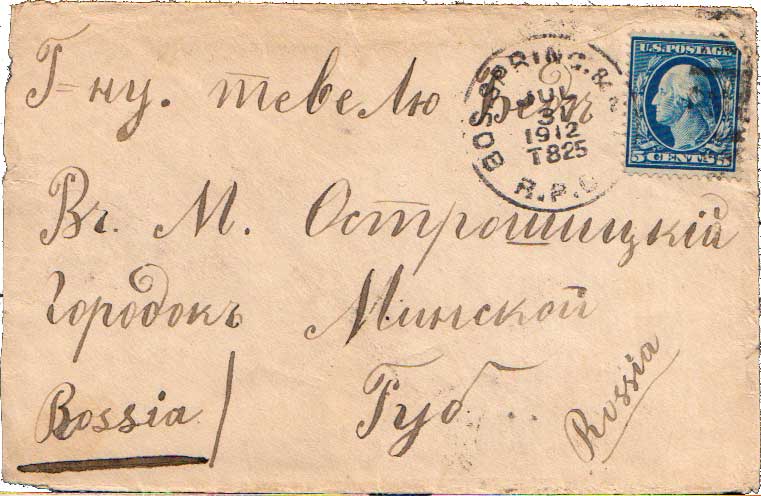 Г=ну. тевелю
Въ. М. Острошицкій
Городокъ Минской
Bossia Губ.
Russia
U.S. POSTAGE
5 CENTS
BOS. SPRING. &
JUL
31
1912
T825
R.P.O